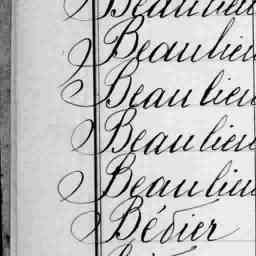 Beaulieu
Beaulieu
Beaulieu
Beaulieu
Beaulieu
Bédier